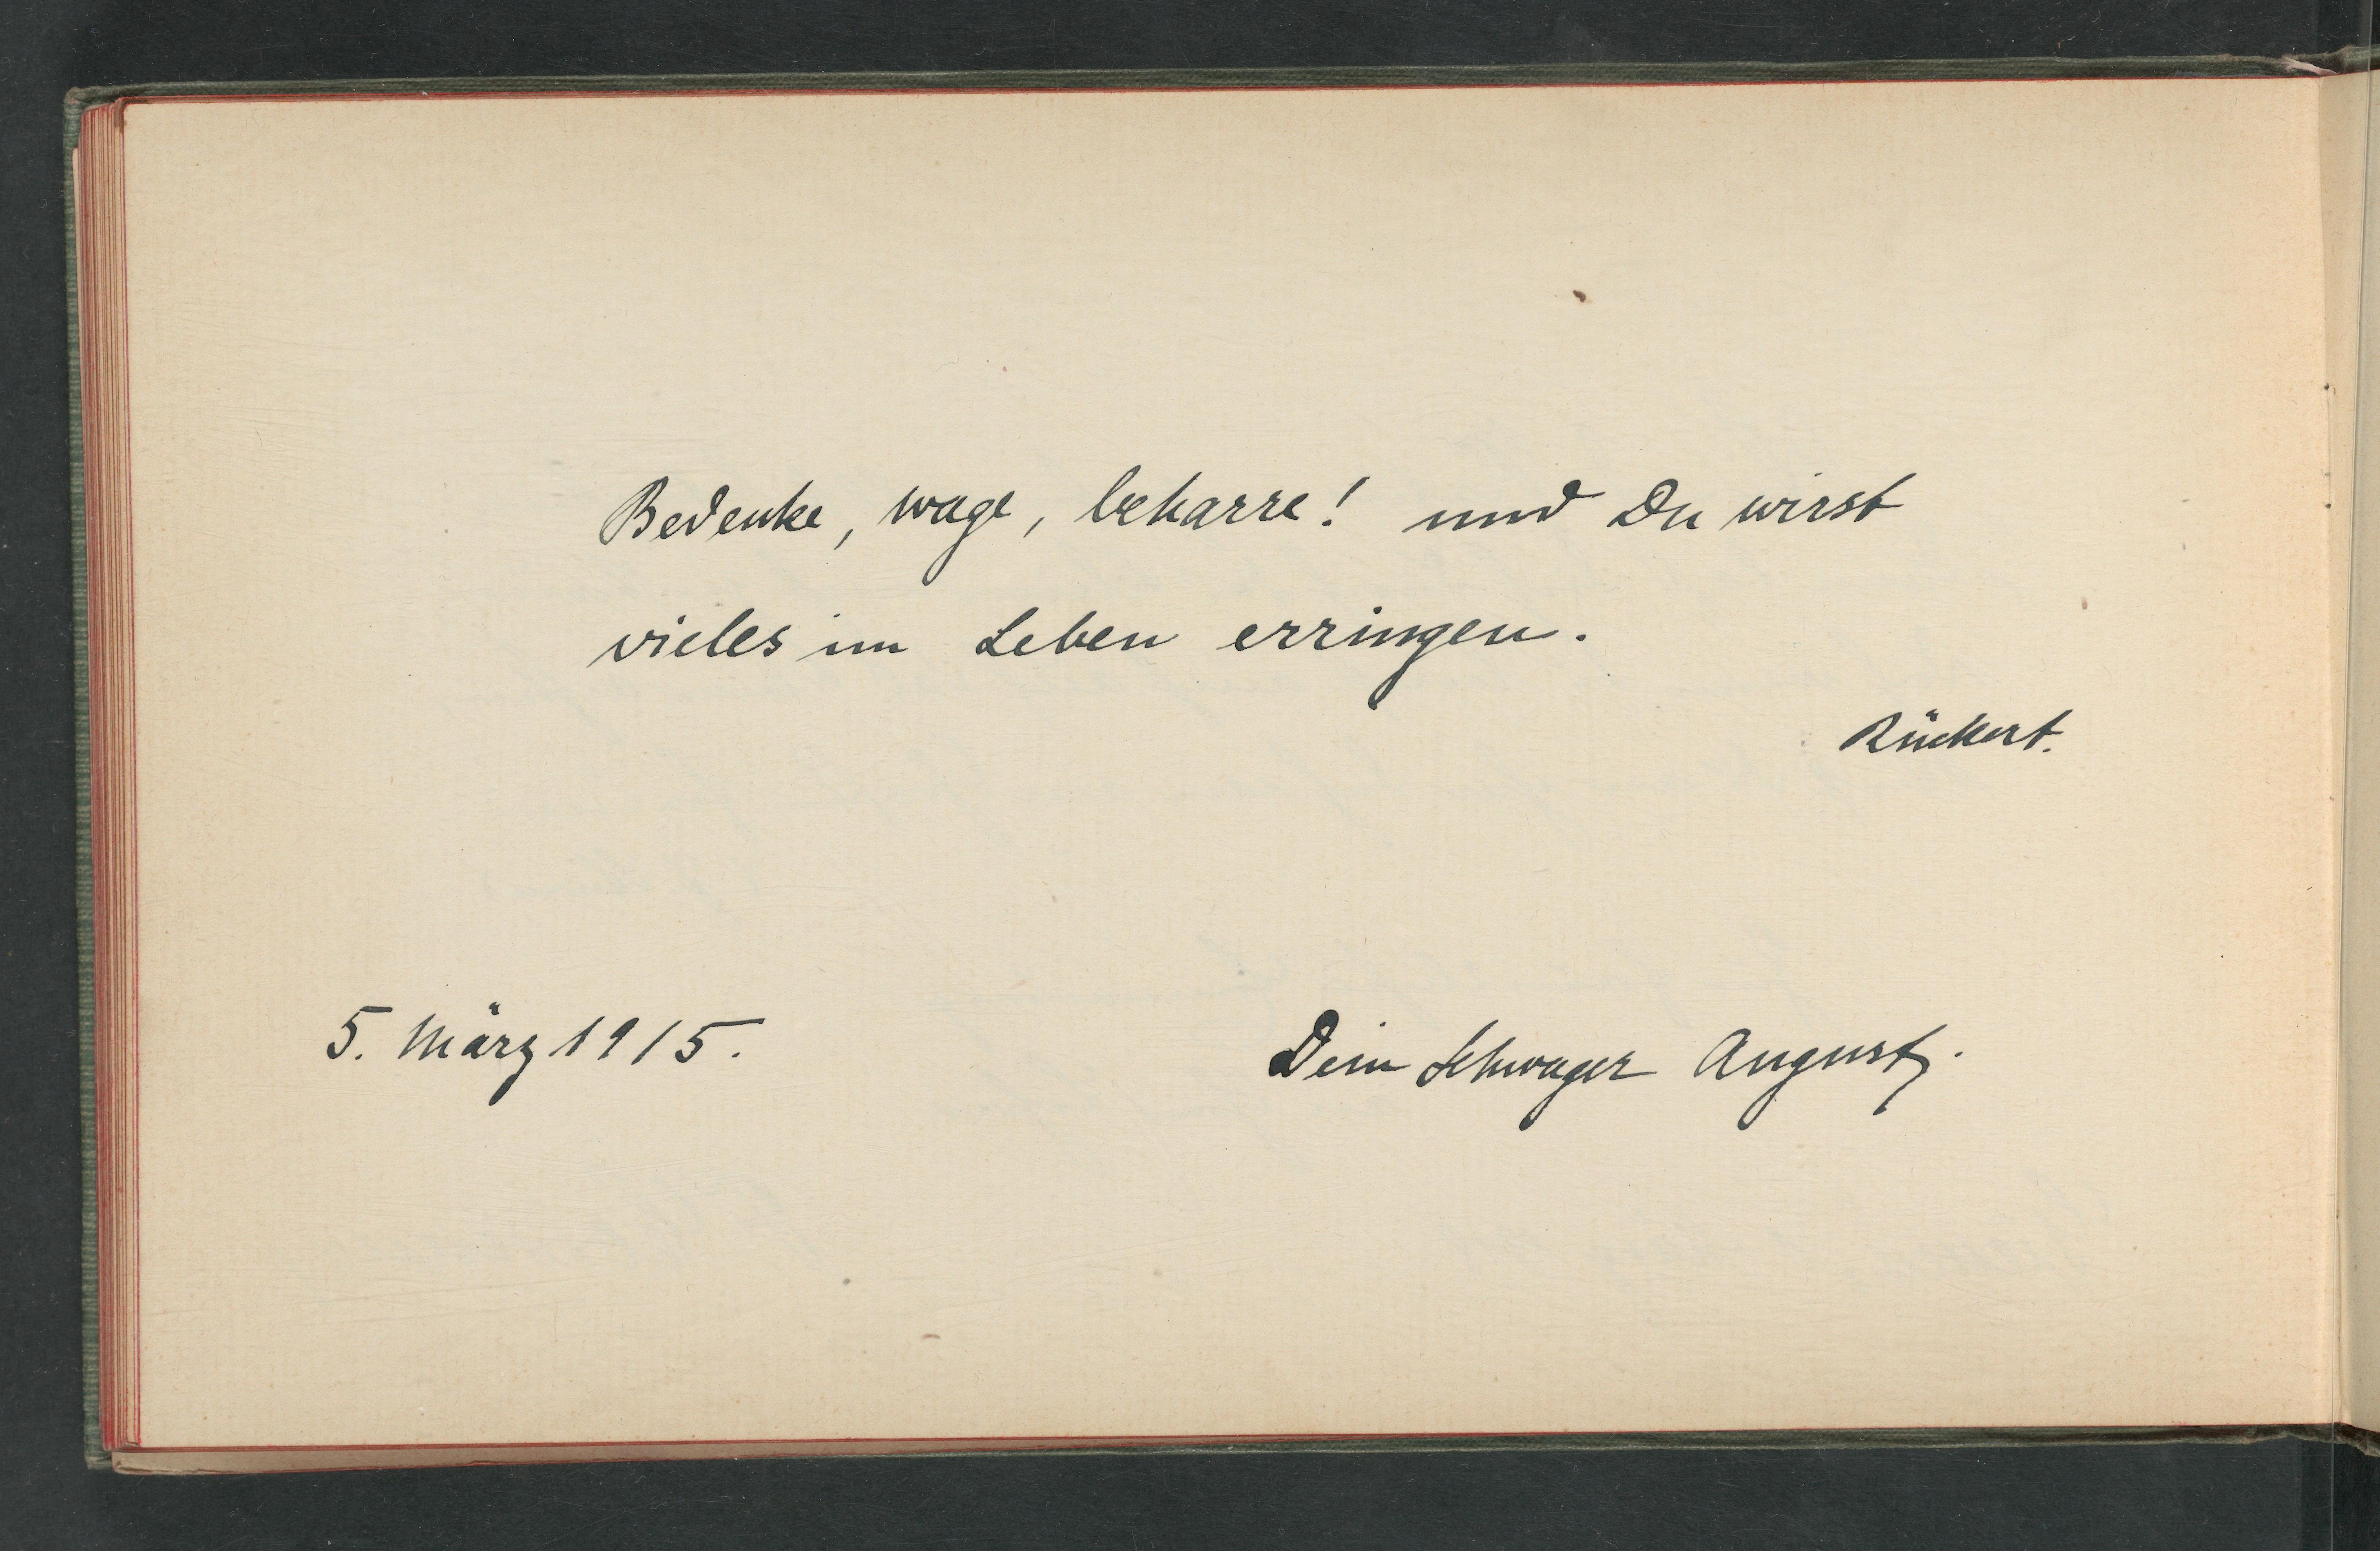 Bedenke, wage, beharre! und Du wirst
vieles im Leben erringen.
Rückert.
5. März 1915.
Dein Schwager August.